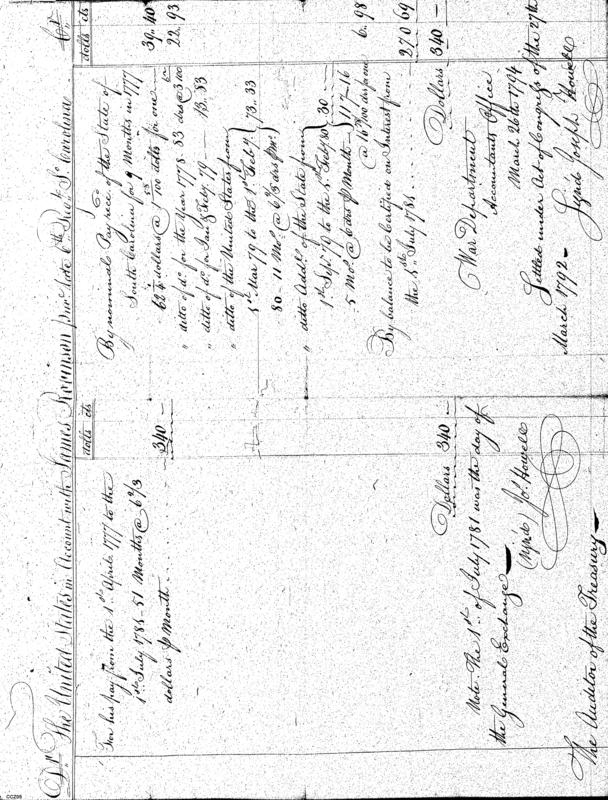 Dr. The United States in Account with James Robinson priv. late 6th Regt. So. Carolina Cr.
dolls cts
For his pay from the 1st April 1777 to the
1st July 1781 - 51 Months @ 6 2/3
dollars ⅌ Month 340 -
Dollars 340 -
Note. The 1st of July 1781 was the day of
the General Exchange -
(sign'd) Jo. Howell
The Auditor of the Treasury -
dolls cts
By nominal Pay rec'd of the State of
South Carolina for 9 Months in 1777
dollars @ /100 dolls for one 39. 40
" ditto of do. for the Year 1778 - 83 22. 93
" ditto of do. for Jan & Feby. 79 - 13. 83
" ditto of the United States from
1st Mar 79 to the 1st Feby.
80 - 11 Mo. @ 6 2/3 drs ⅌ Mo. 73. 33
" ditto Addl. of the State from
1st Sept. 79 to the 1st Feby. 80 30
5 Mo. @ 6 drs ⅌ Month 117-16
@ 16 /100 drs for one 6. 98
By balance to be Certified on Interest from
the 1st July 1781 270 69
Dollars 340 -
War Department
Accountants Office
March 26th 1794
Settled under Act of Congress of the 27th
March 1792 - Sign'd Joseph Howell
CCZ99